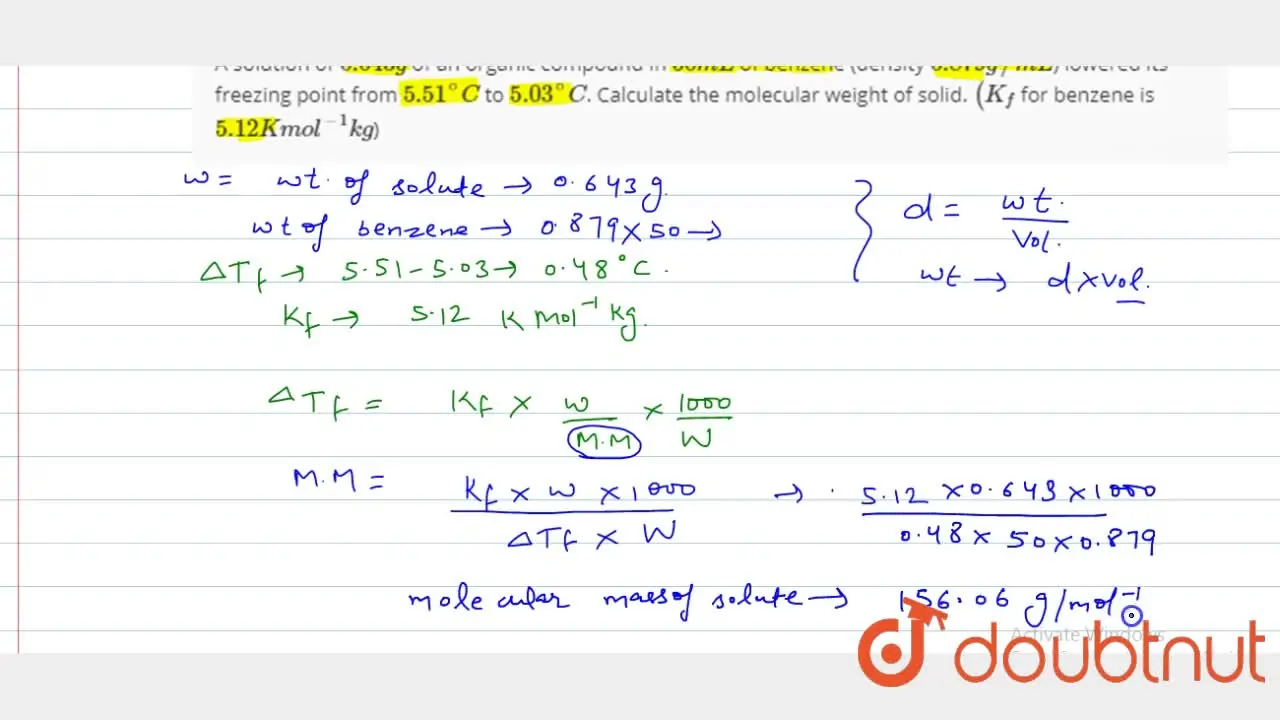 A solution of 0.643g of an organic compound in 50mL of benzene (density 0.879g/mL) lowered its
freezing point from 5.51°C to 5.03°C. Calculate the molecular weight of solid. (K_f for benzene is
5.12Kmol⁻¹kg)
w = wt. of solute → 0.643 g.
wt of benzene → 0.879 × 50 →
} d = wt. / Vol.
wt → d × vol.
ΔTf → 5.51 - 5.03 → 0.48°C.
Kf → 5.12 K mol⁻¹ kg.
ΔTf = Kf × w / M.M × 1000 / W
M.M = Kf × w × 1000 / ΔTf × W → 5.12 × 0.643 × 1000 / 0.48 × 50 × 0.879
molecular mass of solute → 156.06 g/mol⁻¹
Activate Windows
doubtnut